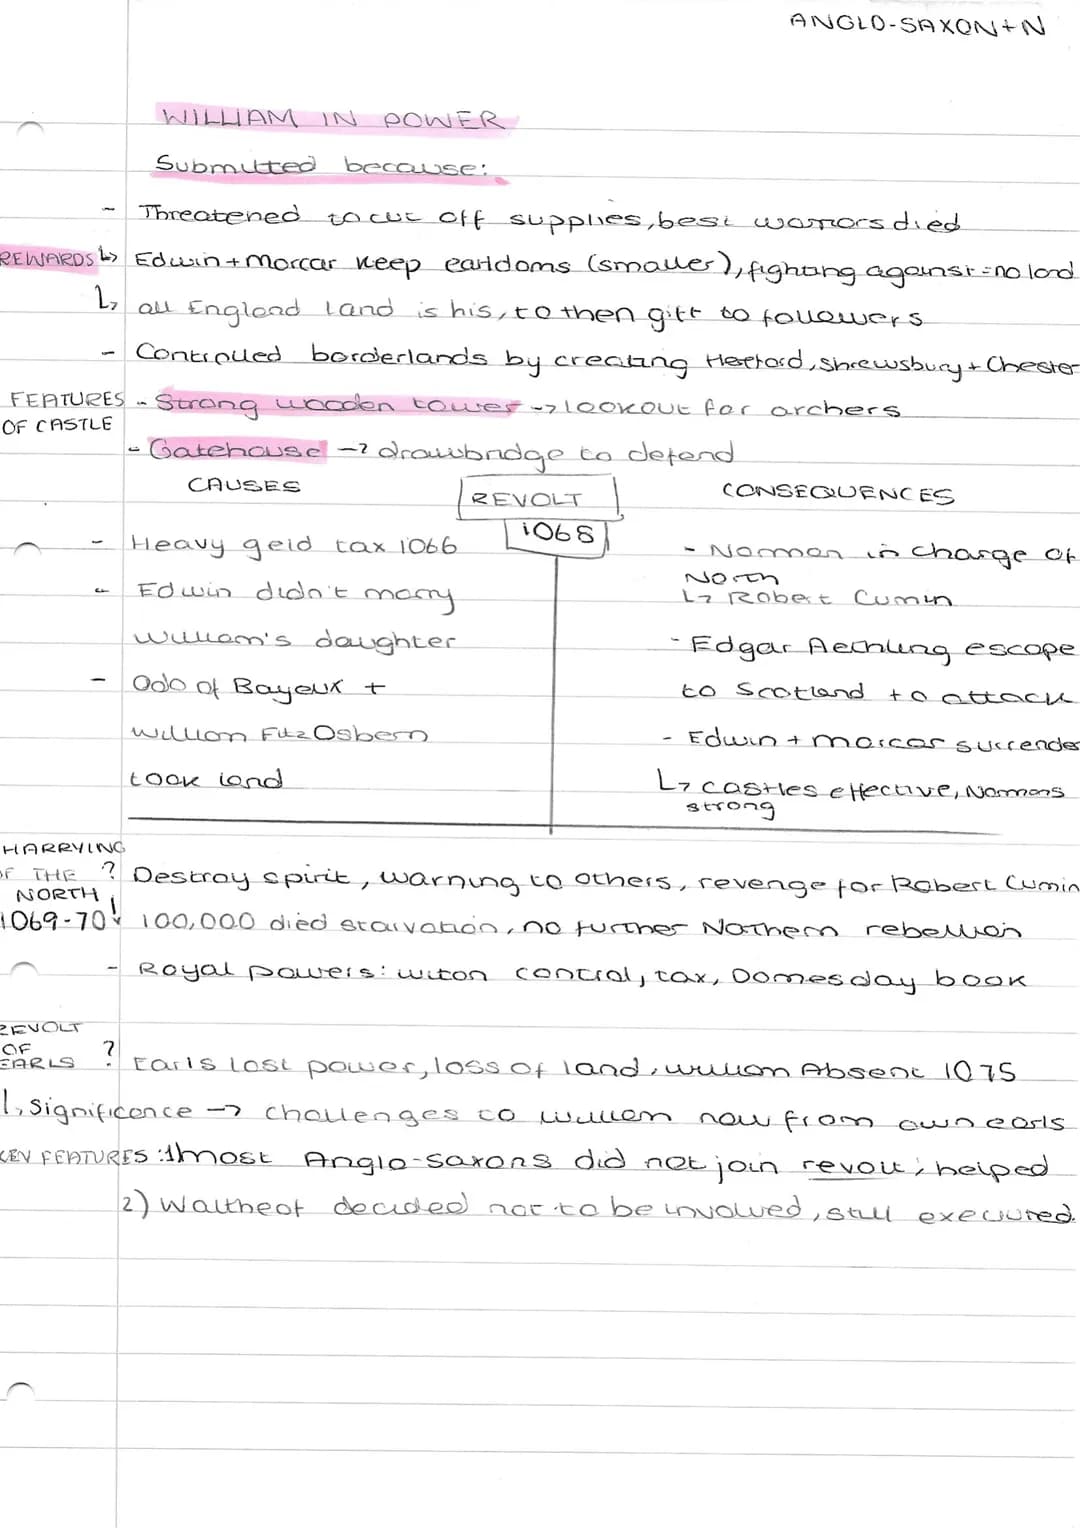 ANGLO-SAXON+N
WILLIAM IN POWER
Submitted because:
- Threatened to cut off supplies, best warriors died
REWARDS ↳ Edwin + Morcar keep earldoms (smaller), fighting against = no land
↳ all England land is his, to then gift to followers
- Controlled borderlands by creating Hertford, Shrewsbury + Chester
FEATURES OF CASTLE - Strong wooden tower -> lookout for archers
- Gatehouse -> drawbridge to defend
REVOLT
1068
CAUSES
- Heavy geld tax 1066
- Edwin didn't marry
William's daughter
- Odo of Bayeux +
William FitzOsbern
took land
CONSEQUENCES
- Norman in charge of
North
↳ Robert Cumin
- Edgar Aethling escape
to Scotland to attack
- Edwin + Morcar surrender
↳ castles effective, Normans
strong
HARRYING
OF THE ? Destroy spirit, warning to others, revenge for Robert Cumin
NORTH
1069-70 ↓ 100,000 died starvation, no further Nothern rebellion
- Royal powers: witan control, tax, Domesday book
REVOLT
OF
EARLS ? Earls lost power, loss of land, William Absent 1075
↳ Significance -> challenges to William now from own earls
KEY FEATURES: 1) most Anglo-saxons did not join revolt, helped
2) Waltheof decided not to be involved, still executed.